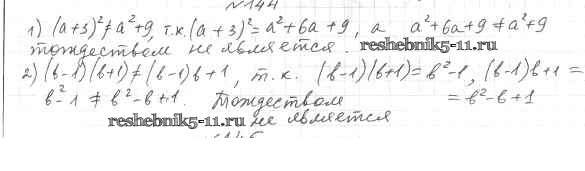 №144
1) (a+3)²≠a²+9, т.к. (a+3)²=a²+6a+9, а a²+6a+9≠a²+9
тождеством не является. reshebnik5-11.ru
2) (b-1)(b+1)≠(b-1)b+1, т.к. (b-1)(b+1)=b²-1, (b-1)b+1=
b²-1≠b²-b+1. Тождеством =b²-b+1
reshebnik5-11.ru не является